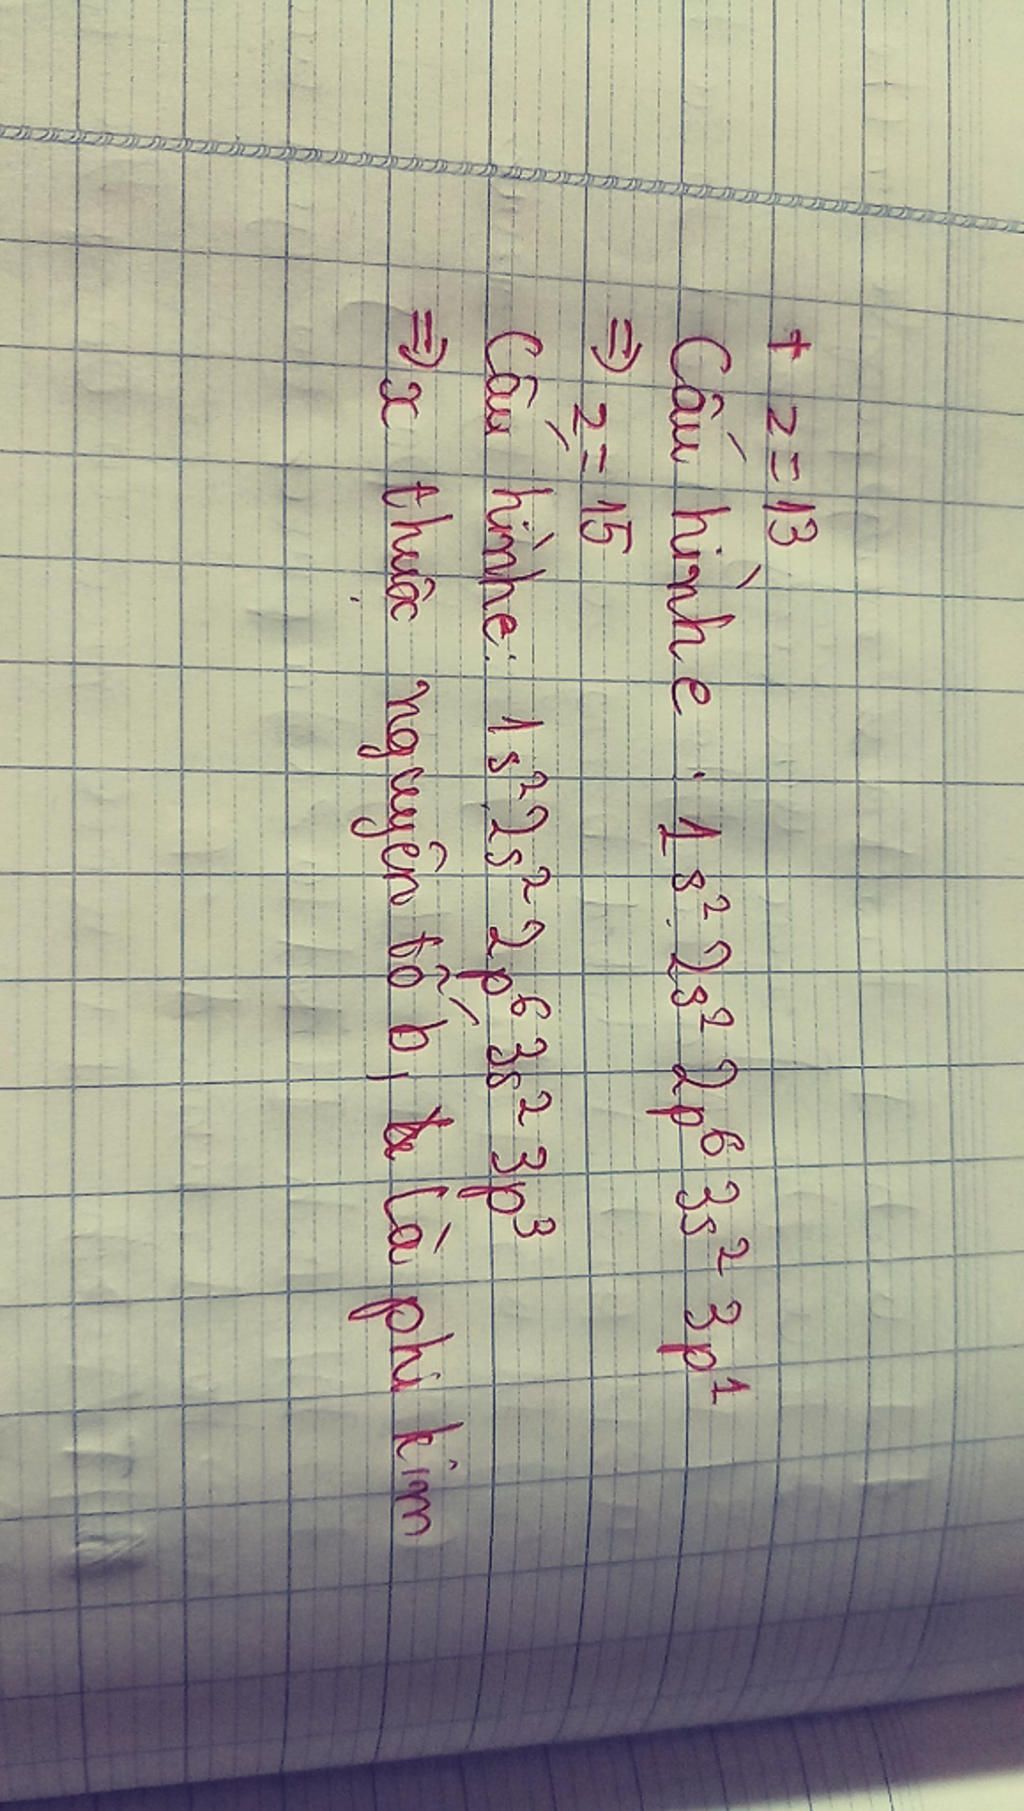 + z = 13
Cấu hình e : 1s² 2s² 2p⁶ 3s² 3p¹
⇒ z = 15
Cấu hình e: 1s² 2s² 2p⁶ 3s² 3p³
⇒ x thuộc nguyên tố p, là phi kim